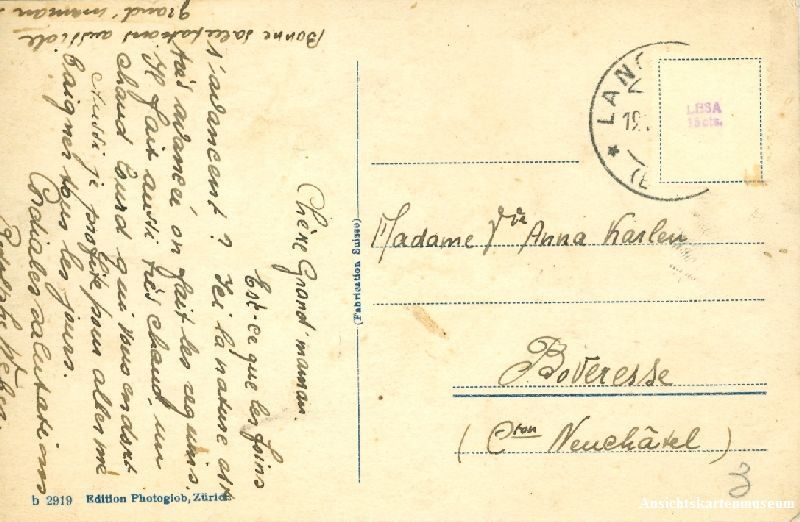 Chère Grand'maman.
Est-ce que les foins
s'avancent? Ici la nature est
très avancé on fait les regains.
Il fait aussi très chaud, un
chaud lourd qui vous endort
Aussi je profite pour aller me
baigner tous les jours.
Cordiales salutations
Bonne salutations aussi de
grand'maman
LANG
19.
LBSA
15 cts.
Madame Vve Anna Karlen
Boveresse
(Cton Neuchâtel)
(Fabrication Suisse)
b 2919 Edition Photoglob, Zürich
3
Ansichtskartenmuseum